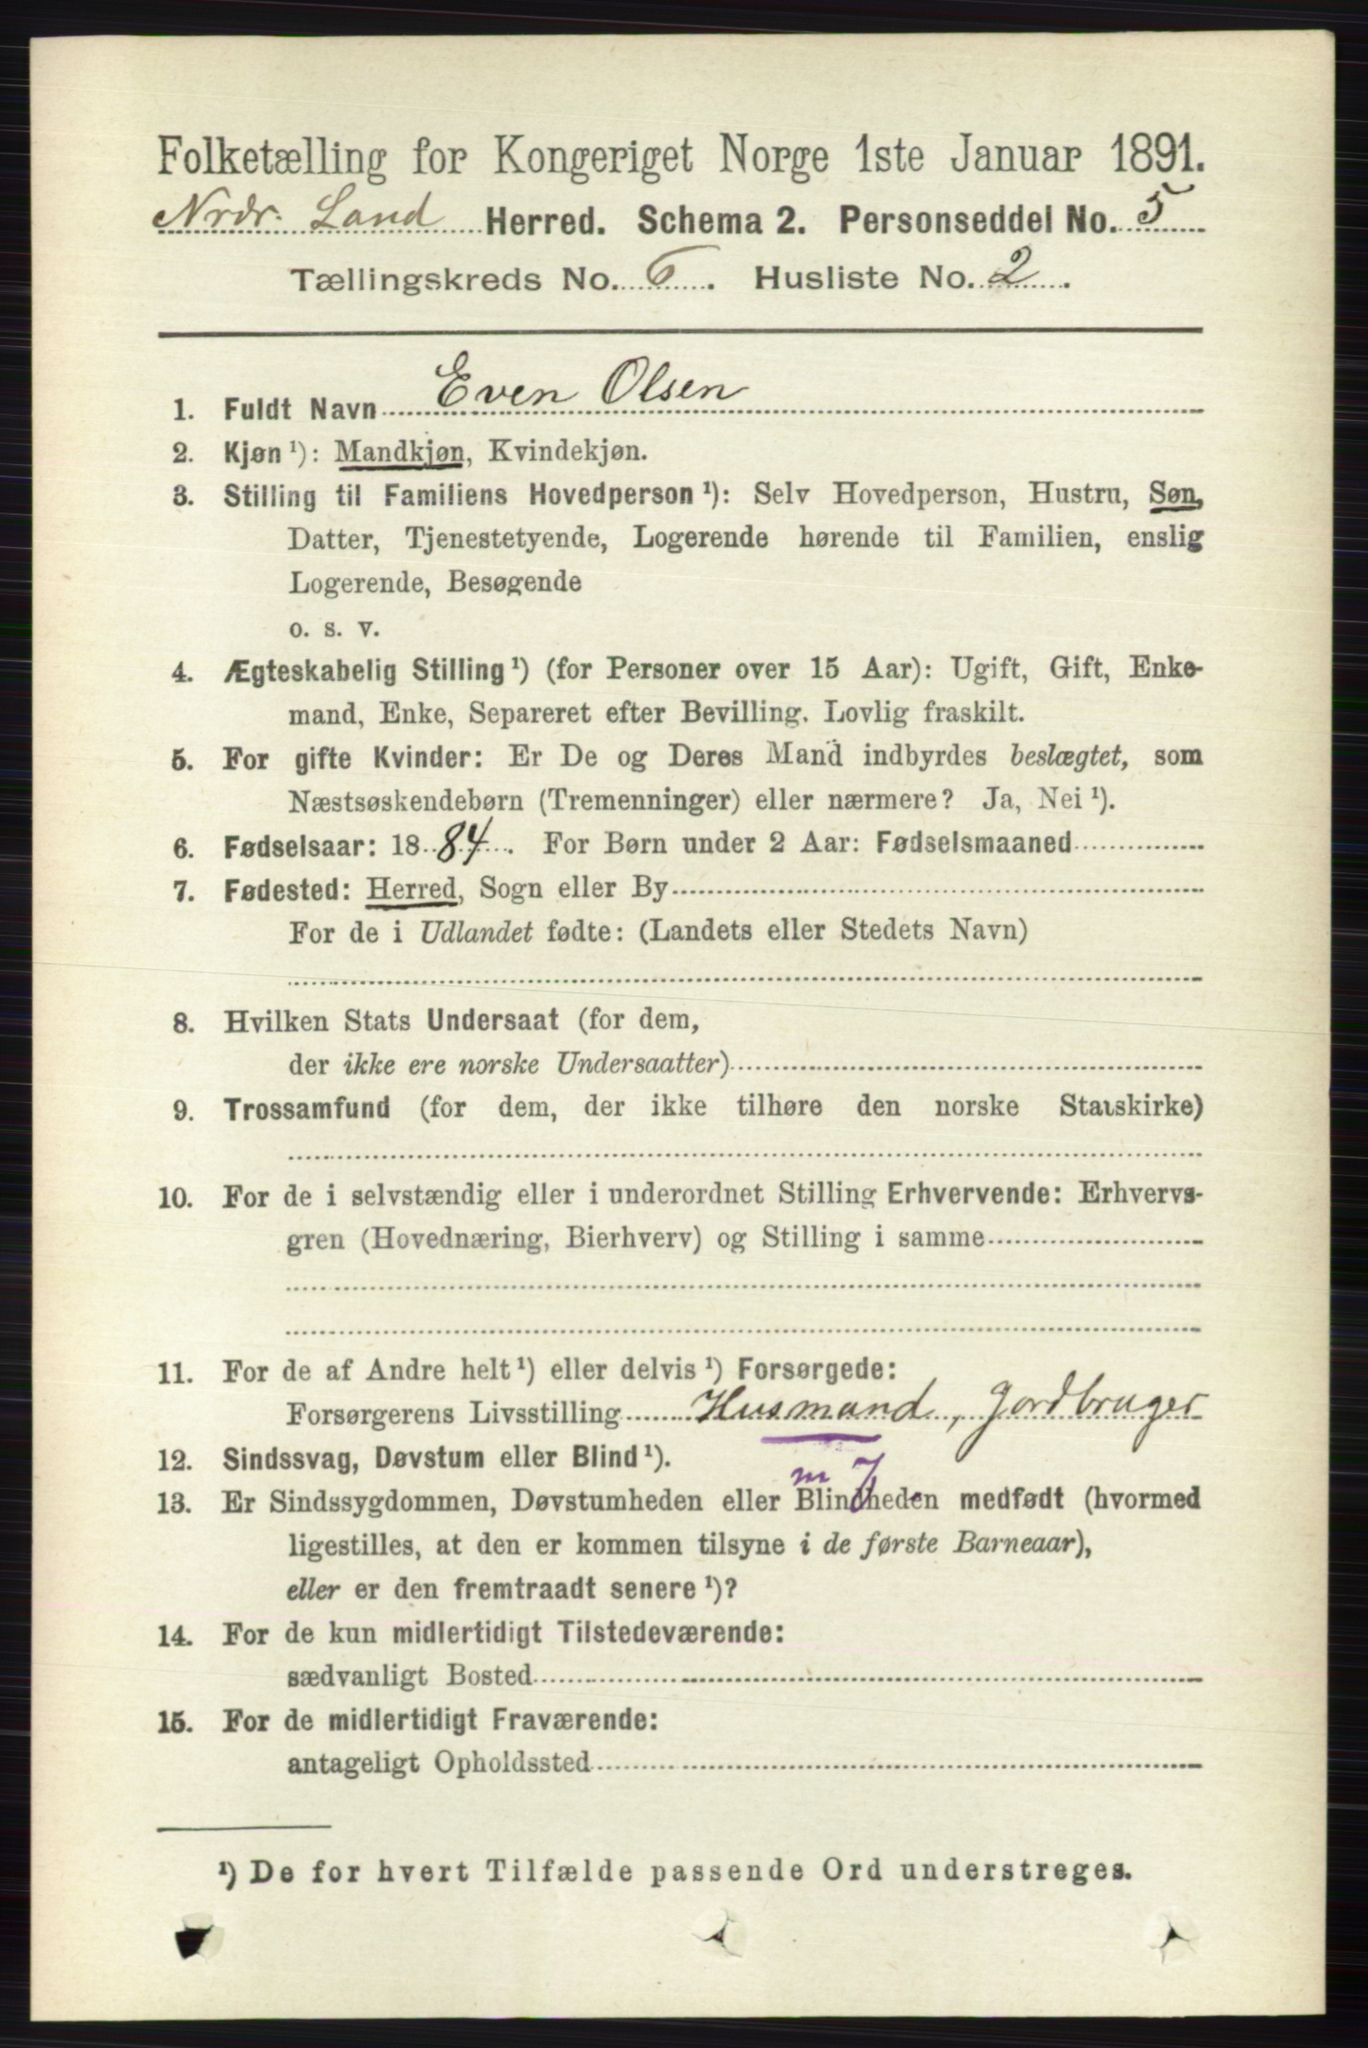 Folketælling for Kongeriget Norge 1ste Januar 1891.
Nrdr. Land Herred. Schema 2. Personseddel No. 5
Tællingskreds No. 6. Husliste No. 2.
1. Fuldt Navn Even Olsen
2. Kjøn ¹): Mandkjøn, Kvindekjøn.
3. Stilling til Familiens Hovedperson ¹): Selv Hovedperson, Hustru, Søn,
Datter, Tjenestetyende, Logerende hørende til Familien, enslig
Logerende, Besøgende
o. s. v.
4. Ægteskabelig Stilling ¹) (for Personer over 15 Aar): Ugift, Gift, Enke-
mand, Enke, Separeret efter Bevilling. Lovlig fraskilt.
5. For gifte Kvinder: Er De og Deres Mand indbyrdes beslægtet, som
Næstsøskendebørn (Tremenninger) eller nærmere? Ja, Nei ¹).
6. Fødselsaar: 1884. For Børn under 2 Aar: Fødselsmaaned
7. Fødested: Herred, Sogn eller By
For de i Udlandet fødte: (Landets eller Stedets Navn)
8. Hvilken Stats Undersaat (for dem,
der ikke ere norske Undersaatter)
9. Trossamfund (for dem, der ikke tilhøre den norske Statskirke)
10. For de i selvstændig eller i underordnet Stilling Erhvervende: Erhvervs-
gren (Hovednæring, Bierhverv) og Stilling i samme
11. For de af Andre helt ¹) eller delvis ¹) Forsørgede:
Forsørgerens Livsstilling Husmand, Jordbruger
12. Sindssvag, Døvstum eller Blind ¹).
m 7
13. Er Sindssygdommen, Døvstumheden eller Blindheden medfødt (hvormed
ligestilles, at den er kommen tilsyne i de første Barneaar),
eller er den fremtraadt senere ¹)?
14. For de kun midlertidigt Tilstedeværende:
sædvanligt Bosted
15. For de midlertidigt Fraværende:
antageligt Opholdssted
¹) De for hvert Tilfælde passende Ord understreges.